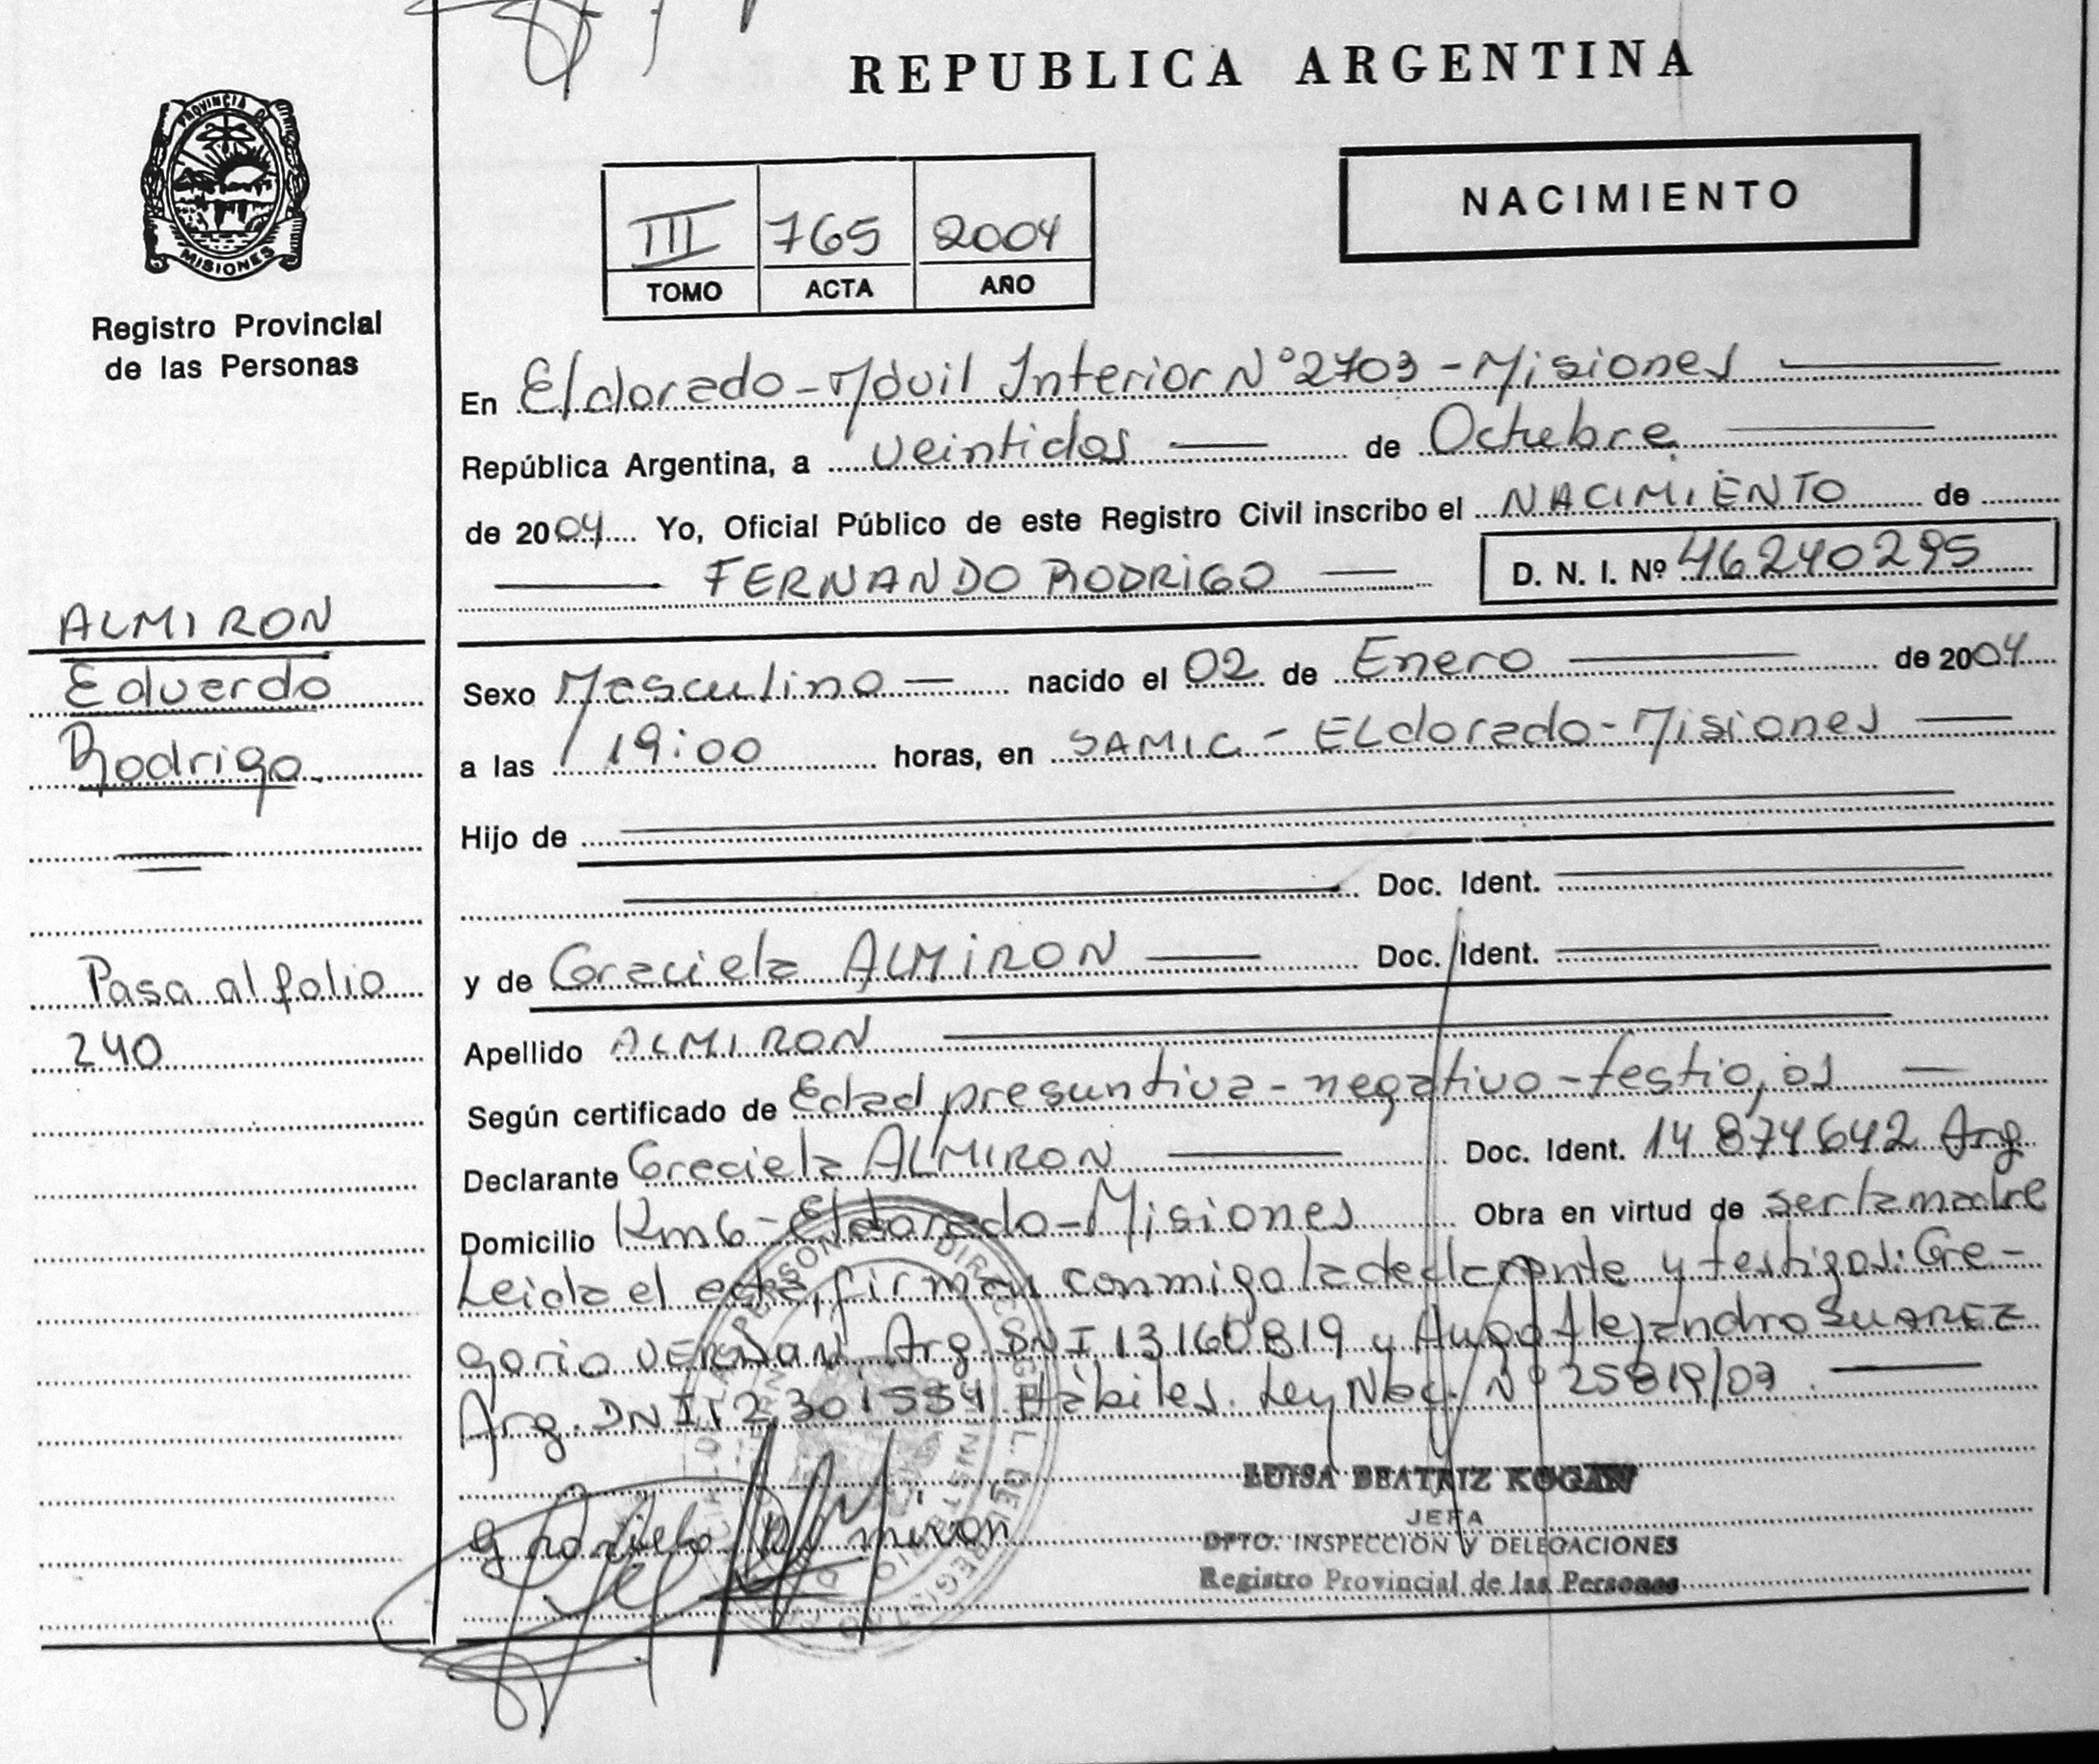 REPUBLICA ARGENTINA
PROVINCIA DE
MISIONES
Registro Provincial
de las Personas
NACIMIENTO
III 765 2004
TOMO ACTA AÑO
En Eldorado - Móvil Interior Nº 2703 - Misiones
República Argentina, a veintidos de Octubre
de 2004 Yo, Oficial Público de este Registro Civil inscribo el NACIMIENTO de
FERNANDO RODRIGO D. N. I. Nº 46240295
ALMIRON
Eduardo
Rodrigo
Pasa al folio
240
Sexo Masculino nacido el 02 de Enero de 2004
a las 19:00 horas, en SAMIC - ELdorado - Misiones
Hijo de
Doc. Ident.
y de Graciela ALMIRON Doc. Ident.
Apellido ALMIRON
Según certificado de Edad presuntiva - negativo - testig
Declarante Graciela ALMIRON Doc. Ident. 14 874642 Arg
Domicilio Km 6 - Eldorado - Misiones Obra en virtud de ser la madre
Leida el acta, firman conmigo la declarante y testigos: Gre-
gorio Arg. DNI 13160819 y Hugo Alejandro SUAREZ
Arg. DNI 12.301554 Hábiles. Ley Nac. Nº 25819/03
Graciela Almiron
LUISA BEATRIZ KOGAN
JEFA
DPTO. INSPECCION Y DELEGACIONES
Registro Provincial de las Personas